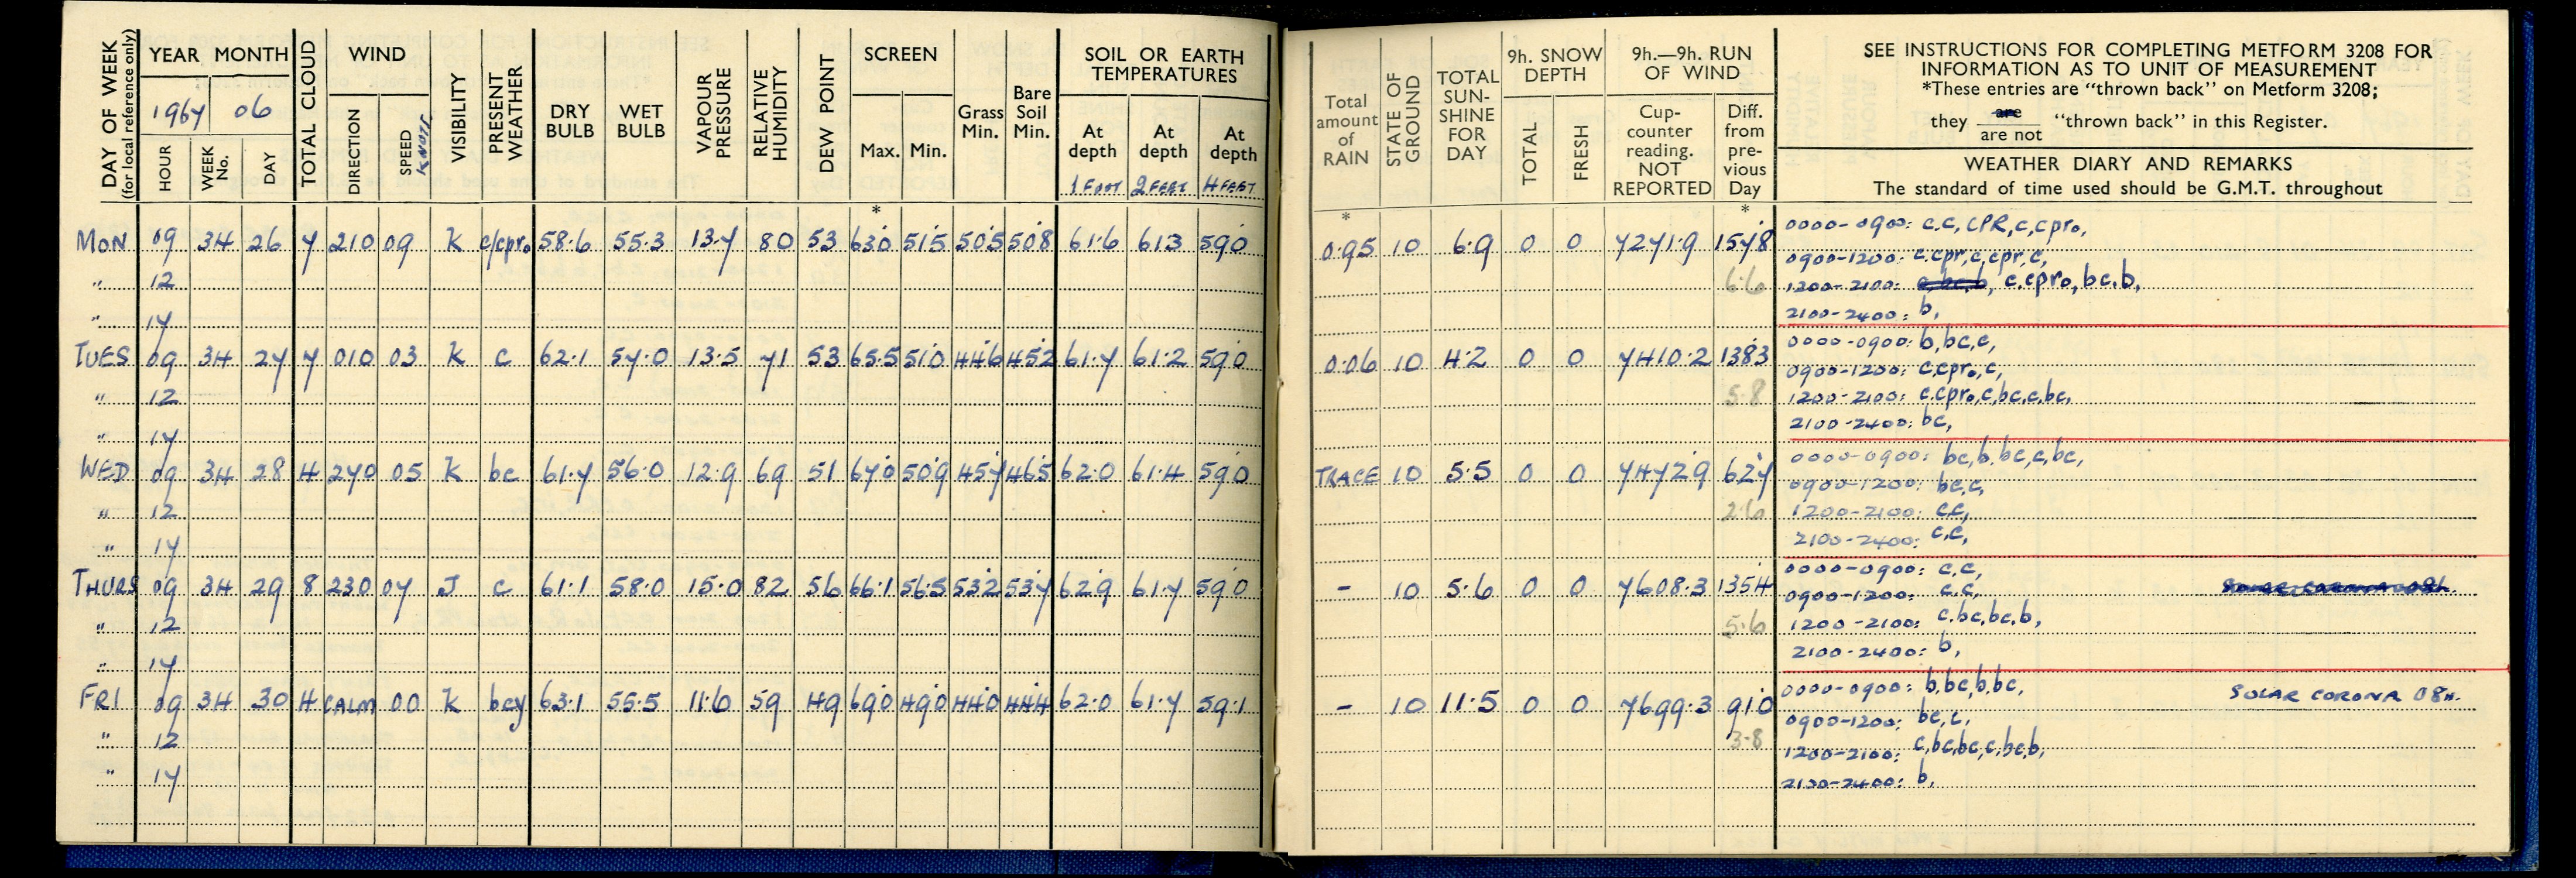 DAY OF WEEK (for local reference only)
YEAR MONTH
1967 06
HOUR WEEK No. DAY
TOTAL CLOUD
WIND
DIRECTION SPEED KNOTS
VISIBILITY
PRESENT WEATHER
DRY BULB
WET BULB
VAPOUR PRESSURE
RELATIVE HUMIDITY
DEW POINT
SCREEN
Max. Min.
Grass Min.
Bare Soil Min.
SOIL OR EARTH TEMPERATURES
At depth 1 FOOT
At depth 2 FEET
At depth 4 FEET
Total amount of RAIN
STATE OF GROUND
TOTAL SUN-SHINE FOR DAY
9h. SNOW DEPTH
TOTAL FRESH
9h.—9h. RUN OF WIND
Cup-counter reading. NOT REPORTED
Diff. from pre-vious Day
SEE INSTRUCTIONS FOR COMPLETING METFORM 3208 FOR
INFORMATION AS TO UNIT OF MEASUREMENT
*These entries are "thrown back" on Metform 3208;
they are / are not "thrown back" in this Register.
WEATHER DIARY AND REMARKS
The standard of time used should be G.M.T. throughout
* * *
MON 09 34 26 7 210 09 K c/cpr₀ 58.6 55.3 13.7 80 53 63.0 51.5 50.5 50.8 61.6 61.3 59.0 0.95 10 6.9 0 0 7271.9 157.8 0000-0900: c.c, CPR,c,cpr₀,
0900-1200: c.cpr,c,cpr,c,
" 12 6.6 1200-2100: c.cpr₀,bc.b,
" 17 2100-2400: b,
TUES 09 34 27 7 010 03 K c 62.1 57.0 13.5 71 53 65.5 51.0 44.6 45.2 61.7 61.2 59.0 0.06 10 4.2 0 0 7410.2 138.3 0000-0900: b,bc,c,
0900-1200: c.cpr₀,c,
" 12 5.8 1200-2100: c.cpr₀,c,bc.c,bc,
" 17 2100-2400: bc,
WED 09 34 28 4 270 05 K bc 61.7 56.0 12.9 69 51 67.0 50.9 45.7 46.5 62.0 61.4 59.0 TRACE 10 5.5 0 0 7472.9 62.7 0000-0900: bc,b.bc,c,bc,
0900-1200: bc,c,
" 12 2.6 1200-2100: c.c,
" 17 2100-2400: c.c,
THURS 09 34 29 8 230 07 J c 61.1 58.0 15.0 82 56 66.1 56.5 53.2 53.7 62.9 61.7 59.0 - 10 5.6 0 0 7608.3 135.4 0000-0900: c.c, SOLAR CORONA 08h.
0900-1200: c.c,
" 12 5.6 1200-2100: c.bc,bc.b,
" 17 2100-2400: b,
FRI 09 34 30 4 CALM 00 K bcy 63.1 55.5 11.6 59 49 69.0 49.0 44.0 44.4 62.0 61.7 59.1 - 10 11.5 0 0 7699.3 91.0 0000-0900: b,bc,b,bc, SOLAR CORONA 08H.
0900-1200: bc,c,
" 12 3.8 1200-2100: c,bc,bc,c,bc,b,
" 17 2100-2400: b,